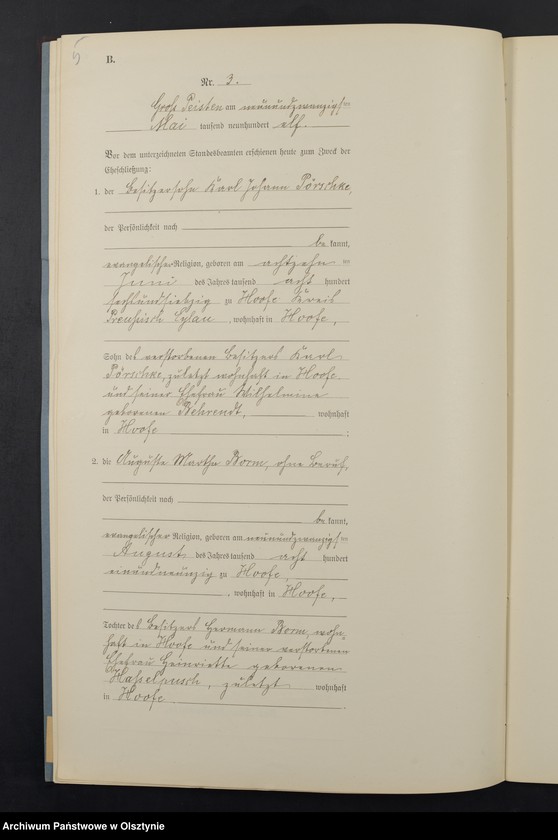 5
B.
Nr. 3.
Groß Peisten am neunundzwanzigsten
Mai tausend neunhundert elf.
Vor dem unterzeichneten Standesbeamten erschienen heute zum Zweck der
Eheschließung:
1. der Besitzersohn Karl Johann Pörschke,
der Persönlichkeit nach
be kannt,
evangelischer Religion, geboren am achtzehnten
Juni des Jahres tausend acht hundert
sechsundsiebzig zu Hoofe Kreis
Preußisch Eylau, wohnhaft in Hoofe,
Sohn des verstorbenen Besitzers Karl
Pörschke, zuletzt wohnhaft in Hoofe
und seiner Ehefrau Wilhelmine
geborenen Behrendt, wohnhaft
in Hoofe ;
2. die Auguste Martha Worm, ohne Beruf,
der Persönlichkeit nach
be kannt,
evangelischer Religion, geboren am neunundzwanzigsten
August des Jahres tausend acht hundert
einundneunzig zu Hoofe,
, wohnhaft in Hoofe,
Tochter des Besitzers Hermann Worm, wohn-
haft in Hoofe und seiner verstorbenen
Ehefrau Heinriette geborenen
Hasselpusch, zuletzt wohnhaft
in Hoofe .
Archiwum Państwowe w Olsztynie